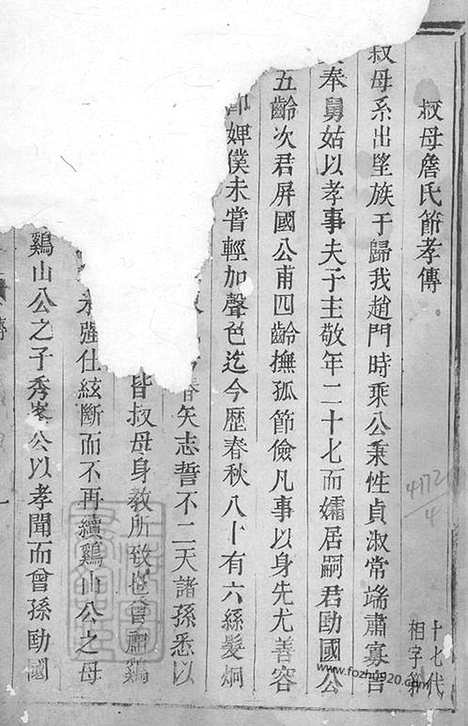 叔母詹氏節孝傳
叔母系出望族于歸我趙門時乘公秉性貞淑常端肅寡言
奉舅姑以孝事夫子主敬年二十七而孀居嗣君勁國公
五齡次君屏國公甫四齡撫孤節儉凡事以身先尤善容
卽婢僕未嘗輕加聲色迄今歷春秋八十有六絲髮烱
矢志誓不二天諸孫悉以
皆叔母身教所致也曾聞鷄
强仕絃斷而不再續鷄山公之母
鷄山公之子秀峯公以孝聞而曾孫勁國
傳
十七代
相字
4172/4
www.fozhu920.com